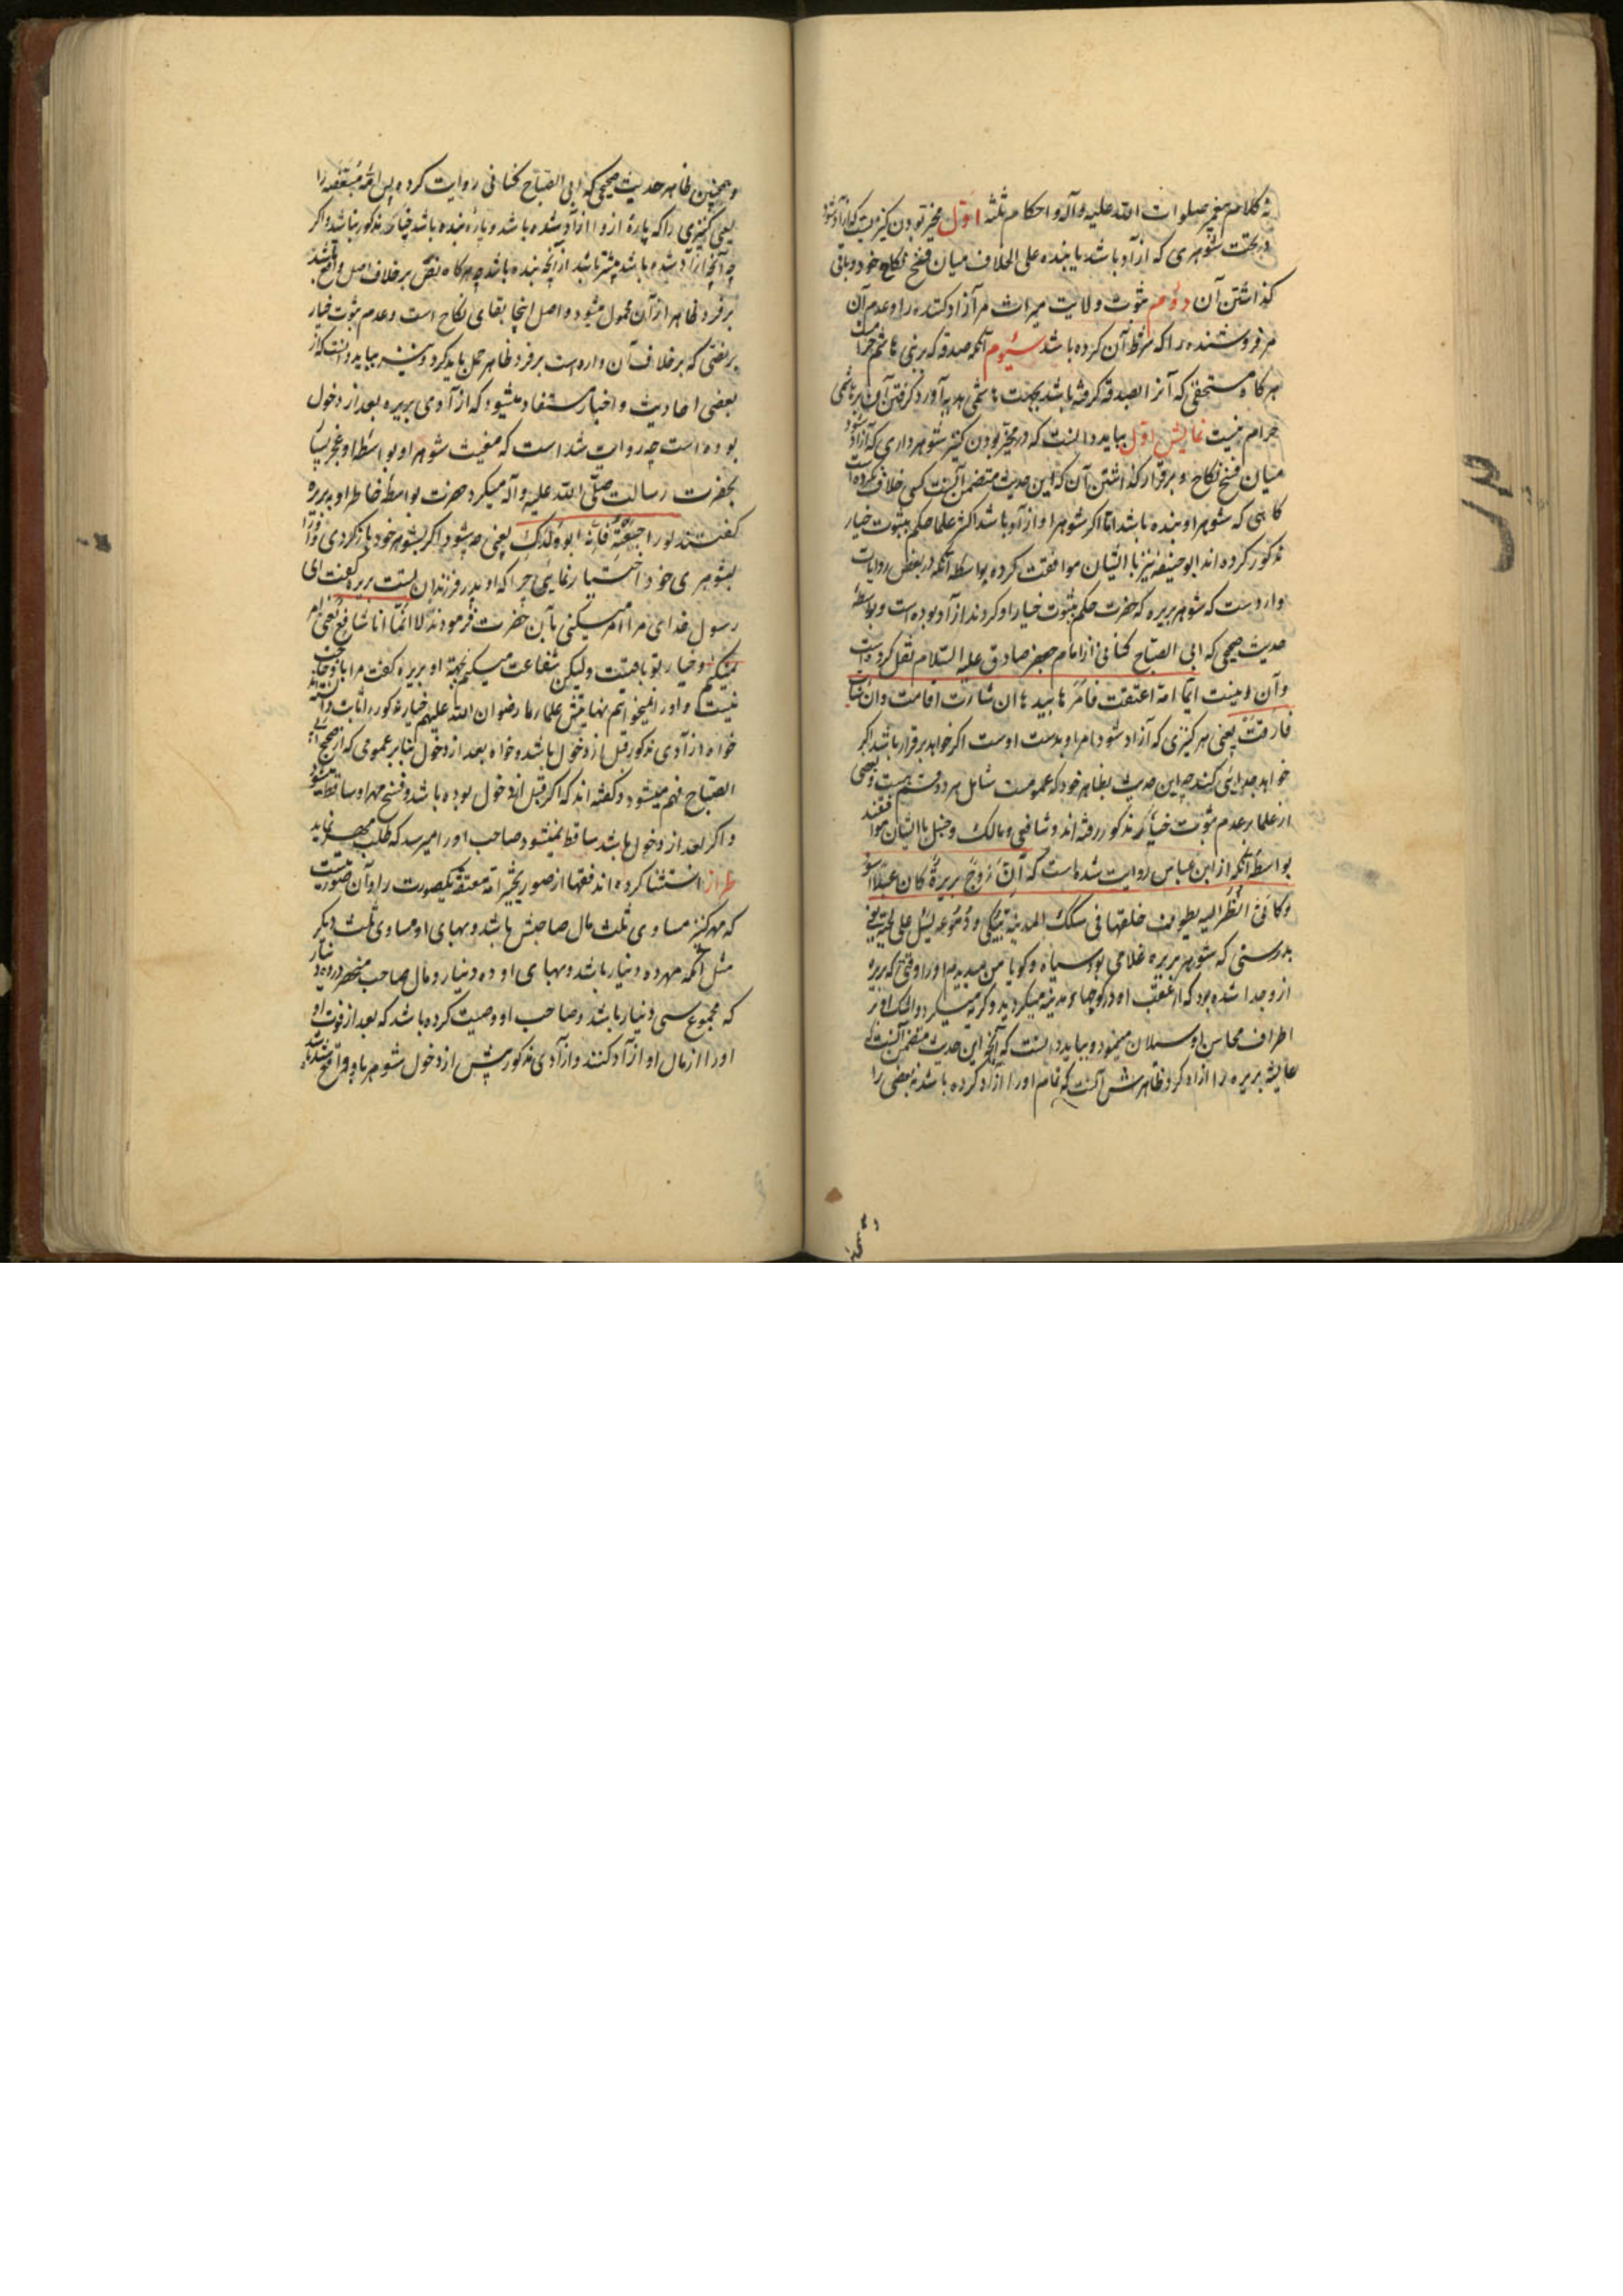 نه کلام پیغمبر صلوات الله علیه وآله و احکام ثلثه اول مخیر بودن کنیزیست که آزاد شود
در تحت شوهری که آزاد باشد یا بنده علی الخلاف میان فسخ نکاح خود و باقی
گذاشتن آن دوم ثبوت ولایت میراث مر آزاد کننده را و عدم آن
مر فروشنده را که شرط آن کرده باشد سیوم آنکه صدقه که بر بنی هاشم حرام است
هرگاه مستحقی که آنرا بصدقه گرفته باشد بجهت هاشمی هدیه آورد گرفتن آن بر هاشمی
حرام نیست نمایش اول بباید دانست که در مخیر بودن کنیز شوهرداری که آزاد شود
میان فسخ نکاح و برقرار گذاشتن آن که این حدیث متضمن آنست کسی خلاف نکرده است
گاهی که شوهر او بنده باشد اما اگر شوهر او آزاد باشد اکثر علما حکم بثبوت خیار
مذکور کرده اند ابو حنیفه نیز با ایشان موافقت کرده بواسطه آنکه در بعض روایات
وارد است که شوهر بریره که حضرت حکم بثبوت خیار او کردند آزاد بوده است و بواسطه
حدیث صحیحی که ابی الصباح کنانی از امام جعفر صادق علیه السلام نقل کرده است
و آن اینست ایما امة اعتقت فامرها بیدها ان شاءت اقامت وان شاءت
فارقت یعنی هر کنیزی که آزاد شود امر او بدست اوست اگر خواهد برقرار باشد اگر
خواهد جدایی کند چه این حدیث بظاهر خود که عمومست شامل هر دو قسم هست و بعضی
از علما بر عدم ثبوت خیار مذکور رفته اند و شافعی و مالک و حنبل با ایشان موافقند
بواسطه آنکه از ابن عباس روایت شده است که ان زوج بریرة کان عبدا اسود
وکانی انظر الیه یطوف خلفها فی سکک المدینة یبکی و دموعه تسیل علی لحیته یعنی
بدرستی که شوهر بریره غلامی بود سیاه و گویا من میدیدم او را وقتی که بریره
ازو جدا شده بود که از عقب او در کوچهاء مدینه میگردید و گریه میکرد و اشک او بر
اطراف محاسن او سیلان مینمود و بباید دانست که آنچه این حدیث متضمن آنست که
عایشه بریره را آزاد کرد ظاهرش آنست که تمام او را آزاد کرده باشد نه بعضی را
و همچنین ظاهر حدیث صحیحی که ابی الصباح کنانی روایت کرده پس امة مبعضه را
یعنی کنیزی را که پارهٔ ازو آزاد شده باشد و پارهٔ بنده باشد خیار مذکور نباشد و اگر
چه آنچه آزاد شده باشد بیشتر باشد از آنچه بنده باشد چه هرگاه نص بر خلاف اصل واقع باشد
بر فرد ظاهر از آن محمول میشود و اصل اینجا بقای نکاح است و عدم ثبوت خیار
پس نصی که بر خلاف آن وارد است بر فرد ظاهر حمل باید کرد و نیز بباید دانست که از
بعضی احادیث و اخبار مستفاد میشود که آزادی بریره بعد از دخول
بوده است چه روایت شده است که مغیث شوهر او بواسطه او
بحضرت رسالت صلی الله علیه وآله میکرد حضرت بواسطه خاطر او به بریره
گفتند لو راجعته فانه ابو ولدک یعنی چه میشود اگر بشوهر خود بازگردی و او را
بشوهری خود اختیار نمایی چرا که او پدر فرزندان تست بریره گفت ای
رسول خدای مرا امر میکنی بآن حضرت فرمودند لا انما انا شافع یعنی امر
نمیکنم و خیار بتو باقیست ولیکن شفاعت میکنم بجهة او بریره گفت مرا باو حاجت
نیست و او را نمیخواهم بنابرین علماء ما رضوان الله علیهم خیار مذکور را ثابت دانسته اند
خواه آزادی مذکور قبل از دخول باشد و خواه بعد از دخول بنا بر عمومی که از صحیح ابی
الصباح فهم میشود و گفته اند که اگر قبل از دخول بوده باشد و فسخ مهر او ساقط میشود
و اگر بعد از دخول باشد ساقط نمیشود و صاحب او را میرسد که طلب مهر نماید
طراز استثنا کرده اند فقها از صور تخییر امة معتقه یکصورت را و آن صورتیست
که مهر کنیز مساوی ثلث مال صاحبش باشد و بهای او مساوی ثلث دیگر
مثل آنکه مهر ده دینار باشد و بهای او ده دینار و مال صاحب منحصر در ده دینار
که مجموع سی دینار باشد و صاحب او وصیت کرده باشد که بعد از فوت او
او را از مال او آزاد کنند و آزادی مذکور پیش از دخول شوهر باو واقع شده باشد